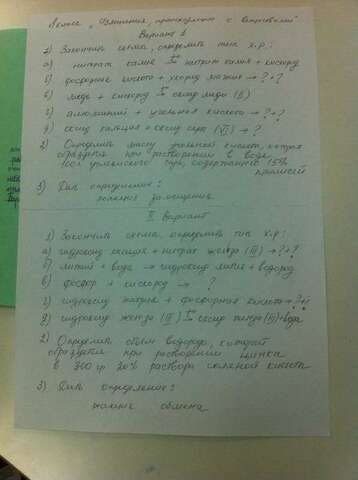 8 класс „Изменения, происходящие с веществами"
Вариант I
1) Закончить схемы, определить тип х.р.:
а) нитрат калия t→ нитрит калия + кислород
б) фосфорная кислота + хлорид магния → ? + ?
в) медь + кислород t→ оксид меди (II)
г) алюминий + угольная кислота → ? + ?
д) оксид кальция + оксид серы (VI) → ?
2) Определить массу угольной кислоты, которая
образуется при растворении в воде
углекислого газа, содержащего 15%
примесей
3) Дать определение:
реакция замещения
II Вариант
1) Закончить схемы, определить тип х.р.:
а) гидроксид кальция + нитрат железа (III) → ? + ?
б) литий + вода → гидроксид лития + водород
в) фосфор + кислород → ?
г) гидроксид натрия + фосфорная кислота → ? + ?
д) гидроксид железа (III) t→ оксид железа (III) + вода
2) Определить объем водорода, который
образуется при растворении цинка
в 300 гр 20% раствора соляной кислоты
3) Дать определение:
реакция обмена